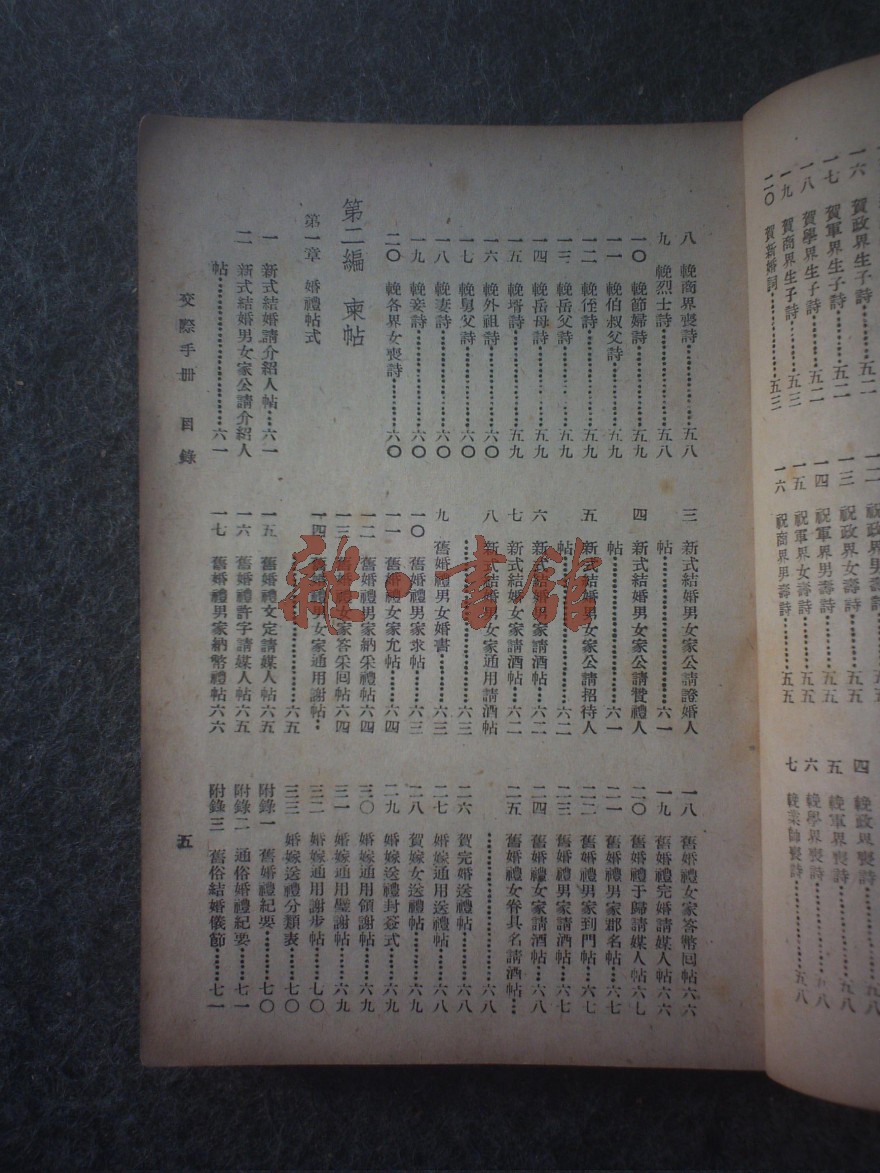 一六　賀政界生子詩………五二
一七　賀軍界生子詩………五二
一八　賀學界生子詩………五二
一九　賀商界生子詩………五三
二〇　賀新婚詞………五三
一三　祝政界女壽詩………五五
一四　祝軍界男壽詩………五五
一五　祝軍界女壽詩………五五
一六　祝商界男壽詩………五五
四　輓政界喪詩………五八
五　輓軍界喪詩………五八
六　輓學界喪詩………五八
七　輓業師喪詩………五八
八　輓商界喪詩………五八
九　輓烈士詩………五八
一〇　輓節婦詩………五九
一一　輓伯叔父詩………五九
一二　輓侄詩………五九
一三　輓岳父詩………五九
一四　輓岳母詩………五九
一五　輓壻詩………五九
一六　輓外祖詩………六〇
一七　輓舅父詩………六〇
一八　輓妻詩………六〇
一九　輓妾詩………六〇
二〇　輓各界女喪詩………六〇
第二編　柬帖
第一章　婚禮帖式
一　新式結婚請介紹人帖……六一
二　新式結婚男女家公請介紹人
帖………六一
三　新式結婚男女家公請證婚人
帖………六一
四　新式結婚男女家公請贊禮人
帖………六一
五　新式結婚男女家公請招待人
帖………六二
六　新式結婚男家請酒帖……六二
七　新式結婚女家請酒帖……六二
八　新式結婚男女家通用請酒帖
………六三
九　舊婚禮男女婚書………六三
一〇　舊婚禮男家求帖………六三
一一　舊婚禮女家允帖………六四
一二　舊婚禮男家納采禮帖……六四
一三　舊婚禮女家答采回帖……六四
一四　舊婚禮男女家通用謝帖…
………六五
一五　舊婚禮文定請媒人帖……六五
一六　舊婚禮許字請媒人帖……六五
一七　舊婚禮男家納幣禮帖六六
一八　舊婚禮女家答幣回帖六六
一九　舊婚禮完婚請媒人帖六六
二〇　舊婚禮于歸請媒人帖六七
二一　舊婚禮男家郡名帖……六七
二二　舊婚禮男家到門帖……六七
二三　舊婚禮男家請酒帖……六七
二四　舊婚禮女家請酒帖……六八
二五　舊婚禮女眷具名請酒帖…
………六八
二六　賀完婚送禮帖………六八
二七　婚嫁通用送禮帖………六八
二八　賀嫁女送禮帖………六九
二九　婚嫁送禮封簽式………六九
三〇　婚嫁通用領謝帖………六九
三一　婚嫁通用璧謝帖………六九
三二　婚嫁通用謝步帖………七〇
三三　婚嫁送禮分類表………七〇
附錄一　舊婚禮紀要………七〇
附錄二　通俗婚禮紀要………七一
附錄三　舊俗結婚儀節………七一
交際手冊　目錄
五
雜·書館